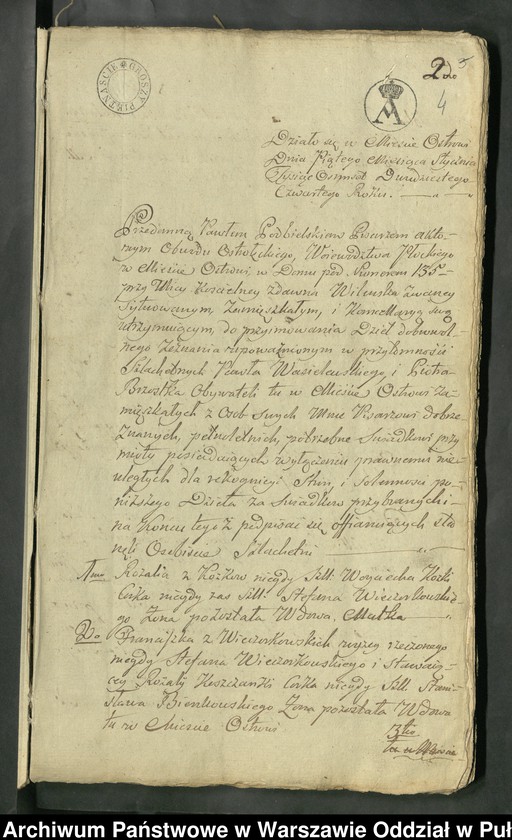 PIĘTNAŚCIE GROSZY
2do
4
Działo się w Mieście Ostrowi
Dnia Piątego Miesiąca Stycznia
Tysiąc Osmset Dwudziestego
Czwartego Roku.
Przedemną Pawłem Podbielskim Pisarzem akto-
wym Obwodu Ostrołęckiego, Woiewództwa Płockiego
w Mieście Ostrowi w Domu pod Numerem 135
przy Ulicy Koscielney zdawna Wilenska zwaney
sytuowanym Zamieszkałym, i Kancellaryą swą
utrzymuiącym, do przyimowania Dzieł dobrowol-
nego Zeznania upoważnionym w przytomności
Szlachetnych Pawła Wasilewskiego, i Piotra
Brzostka Obywateli tu w Mieście Ostrowi Za-
mieszkałych z Osob swych Mnie Pisarzowi dobrze
Znanych, pełnoletnich, potrzebne Swiadkowi przy-
mioty posiadaiących wyłączeniu prawnemu nie-
uległych dla rekognicyi Stron, i Solenności po-
niższego Dzieła za Swiadkow przybranych i
na Końcu tegoż podpisać się offiaruiących sta-
nęli Osobiście Szlachetni
1mo Rozalia z Kozków niegdy Szl: Woyciecha Kozki
Corka niegdy zas Szl: Stefana Wieczorkowskie-
go Zona pozostała Wdowa, Matka
2do Franciszka z Wieczorkowskich wyżey rzeczonego
niegdy Stefana Wieczorkowskiego i Stawaią-
cey Rozalii Corka niegdy Szl: Stani-
sława Bienkowskiego Zona pozostała Wdowa
tu w Mieście Ostrowi
3tio
tu w Mieście
Archiwum Państwowe w Warszawie Oddział w Puł